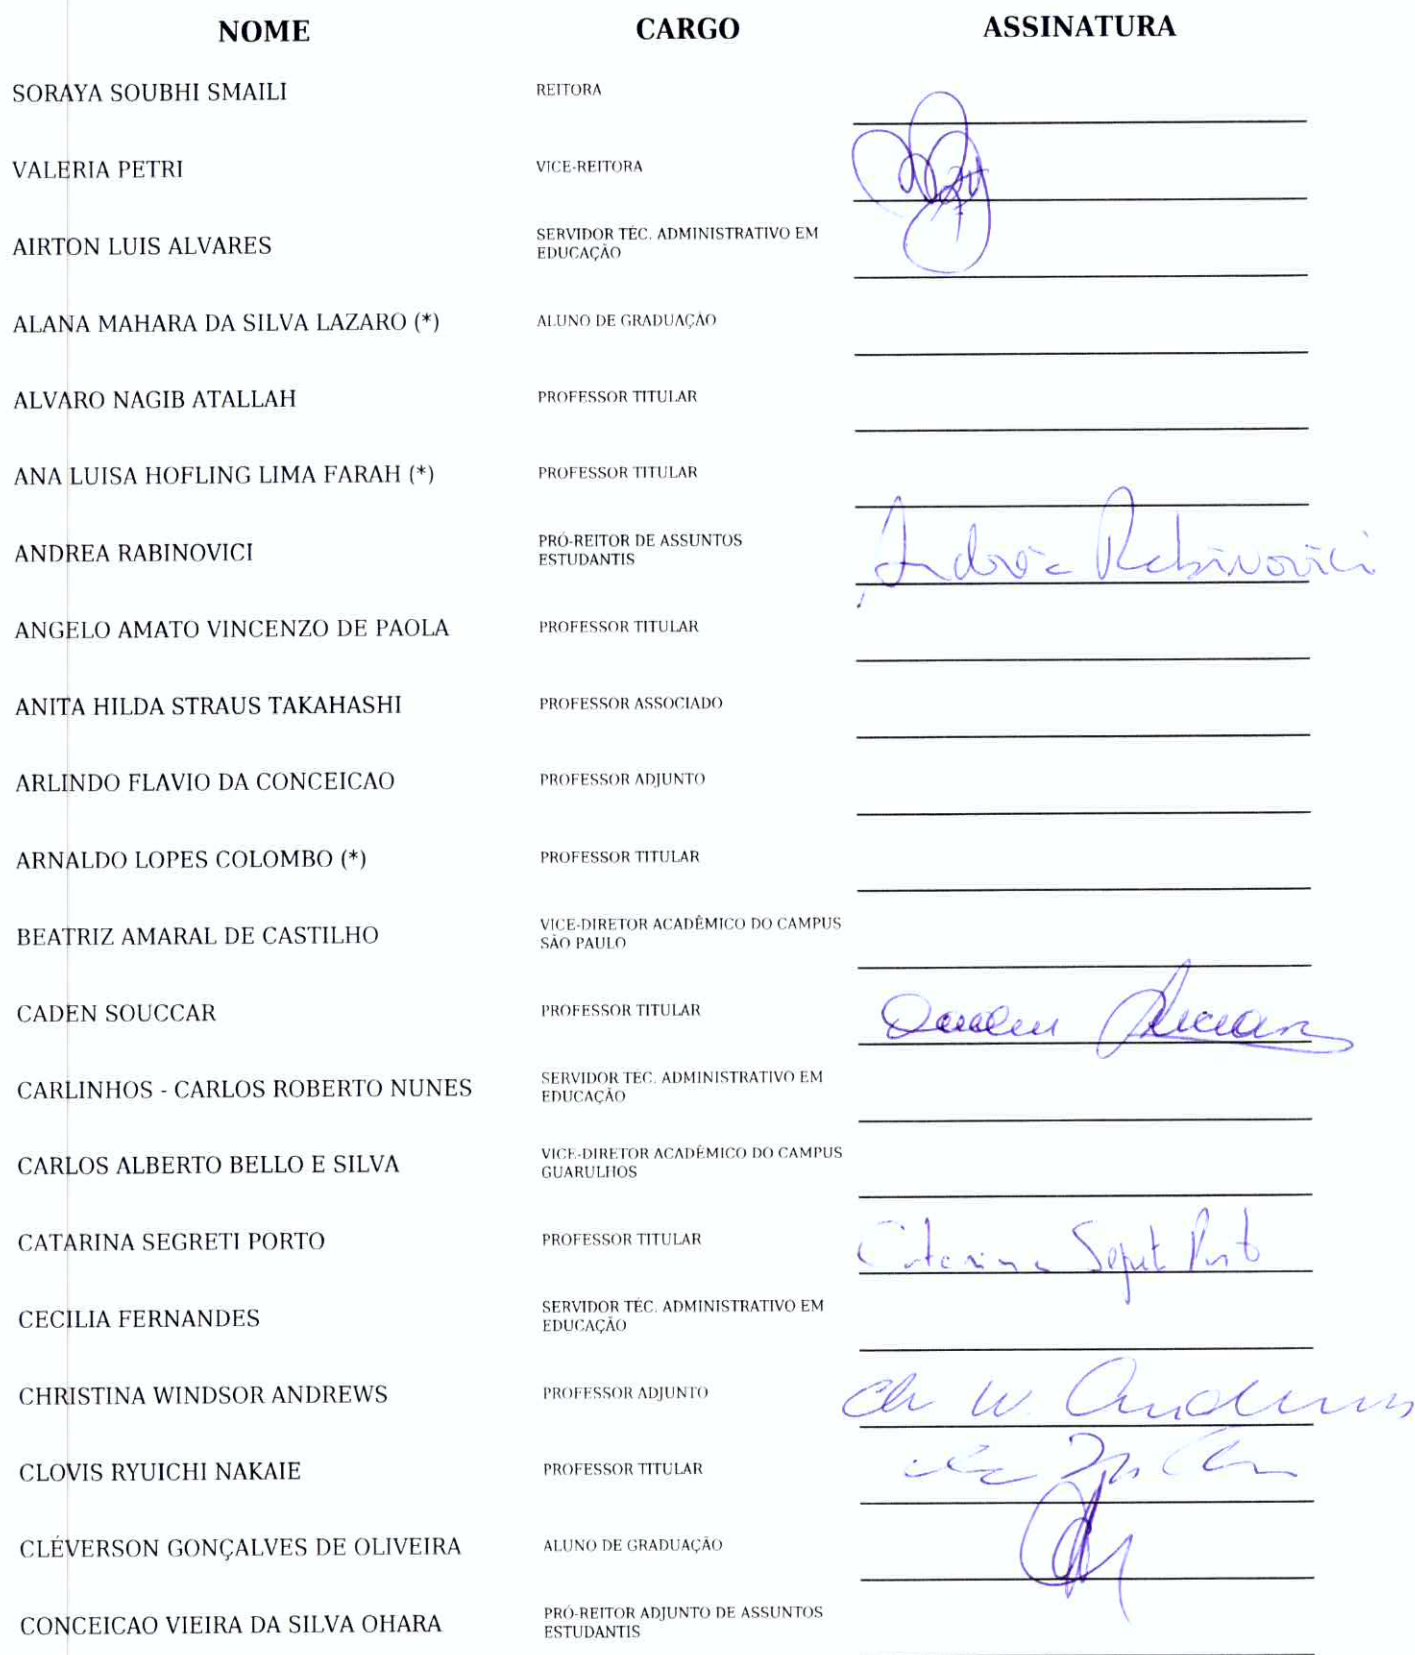 NOME CARGO ASSINATURA
SORAYA SOUBHI SMAILI REITORA
VALERIA PETRI VICE-REITORA
AIRTON LUIS ALVARES SERVIDOR TÉC. ADMINISTRATIVO EM
EDUCAÇÃO
ALANA MAHARA DA SILVA LAZARO (*) ALUNO DE GRADUAÇÃO
ALVARO NAGIB ATALLAH PROFESSOR TITULAR
ANA LUISA HOFLING LIMA FARAH (*) PROFESSOR TITULAR
ANDREA RABINOVICI PRÓ-REITOR DE ASSUNTOS
ESTUDANTIS Andréa Rabinovici
ANGELO AMATO VINCENZO DE PAOLA PROFESSOR TITULAR
ANITA HILDA STRAUS TAKAHASHI PROFESSOR ASSOCIADO
ARLINDO FLAVIO DA CONCEICAO PROFESSOR ADJUNTO
ARNALDO LOPES COLOMBO (*) PROFESSOR TITULAR
BEATRIZ AMARAL DE CASTILHO VICE-DIRETOR ACADÊMICO DO CAMPUS
SÃO PAULO
CADEN SOUCCAR PROFESSOR TITULAR
CARLINHOS - CARLOS ROBERTO NUNES SERVIDOR TÉC. ADMINISTRATIVO EM
EDUCAÇÃO
CARLOS ALBERTO BELLO E SILVA VICE-DIRETOR ACADÊMICO DO CAMPUS
GUARULHOS
CATARINA SEGRETI PORTO PROFESSOR TITULAR Catarina Segreti Porto
CECILIA FERNANDES SERVIDOR TÉC. ADMINISTRATIVO EM
EDUCAÇÃO
CHRISTINA WINDSOR ANDREWS PROFESSOR ADJUNTO Ch W. Andrews
CLOVIS RYUICHI NAKAIE PROFESSOR TITULAR
CLÉVERSON GONÇALVES DE OLIVEIRA ALUNO DE GRADUAÇÃO
CONCEICAO VIEIRA DA SILVA OHARA PRÓ-REITOR ADJUNTO DE ASSUNTOS
ESTUDANTIS